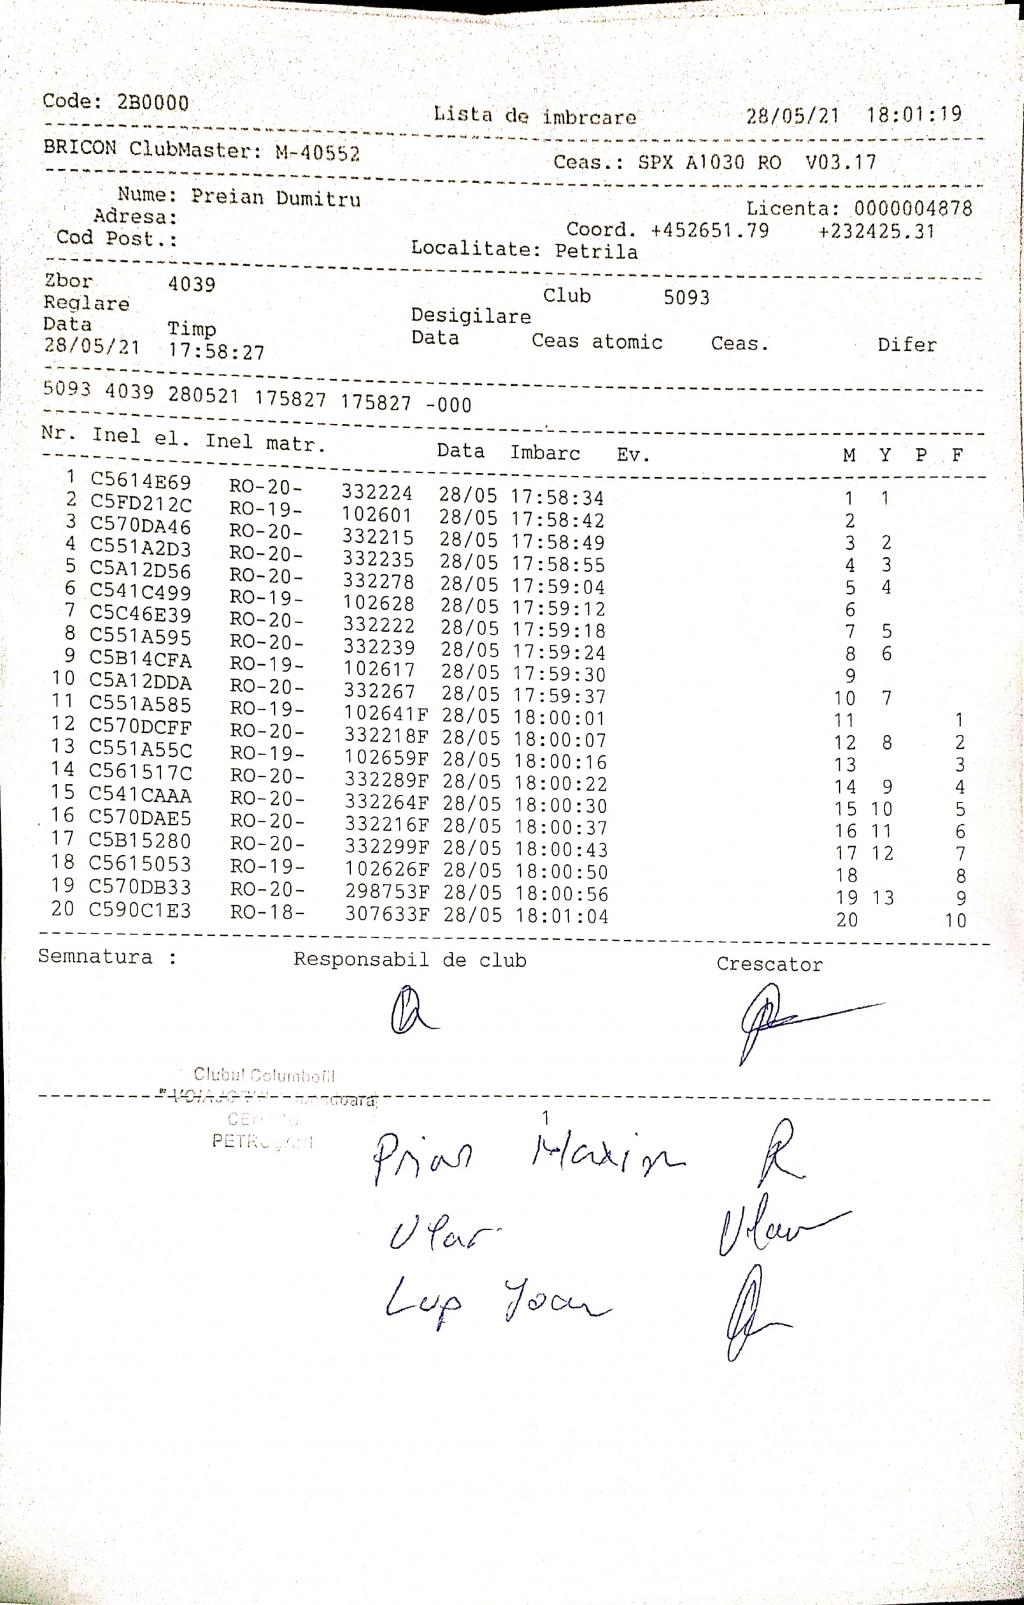 Code: 2B0000 Lista de imbrcare 28/05/21 18:01:19
BRICON ClubMaster: M-40552 Ceas.: SPX A1030 RO V03.17
Nume: Preian Dumitru Licenta: 0000004878
Adresa: Coord. +452651.79 +232425.31
Cod Post.: Localitate: Petrila
Zbor 4039 Club 5093
Reglare Desigilare
Data Timp Data Ceas atomic Ceas. Difer
28/05/21 17:58:27
5093 4039 280521 175827 175827 -000
Nr. Inel el. Inel matr. Data Imbarc Ev. M Y P F
1 C5614E69 RO-20- 332224 28/05 17:58:34 1 1
2 C5FD212C RO-19- 102601 28/05 17:58:42 2
3 C570DA46 RO-20- 332215 28/05 17:58:49 3 2
4 C551A2D3 RO-20- 332235 28/05 17:58:55 4 3
5 C5A12D56 RO-20- 332278 28/05 17:59:04 5 4
6 C541C499 RO-19- 102628 28/05 17:59:12 6
7 C5C46E39 RO-20- 332222 28/05 17:59:18 7 5
8 C551A595 RO-20- 332239 28/05 17:59:24 8 6
9 C5B14CFA RO-19- 102617 28/05 17:59:30 9
10 C5A12DDA RO-20- 332267 28/05 17:59:37 10 7
11 C551A585 RO-19- 102641F 28/05 18:00:01 11 1
12 C570DCFF RO-20- 332218F 28/05 18:00:07 12 8 2
13 C551A55C RO-19- 102659F 28/05 18:00:16 13 3
14 C561517C RO-20- 332289F 28/05 18:00:22 14 9 4
15 C541CAAA RO-20- 332264F 28/05 18:00:30 15 10 5
16 C570DAE5 RO-20- 332216F 28/05 18:00:37 16 11 6
17 C5B15280 RO-20- 332299F 28/05 18:00:43 17 12 7
18 C5615053 RO-19- 102626F 28/05 18:00:50 18 8
19 C570DB33 RO-20- 298753F 28/05 18:00:56 19 13 9
20 C590C1E3 RO-18- 307633F 28/05 18:01:04 20 10
Semnatura : Responsabil de club Crescator
Clubul Columbofil
1
Lup Ioan